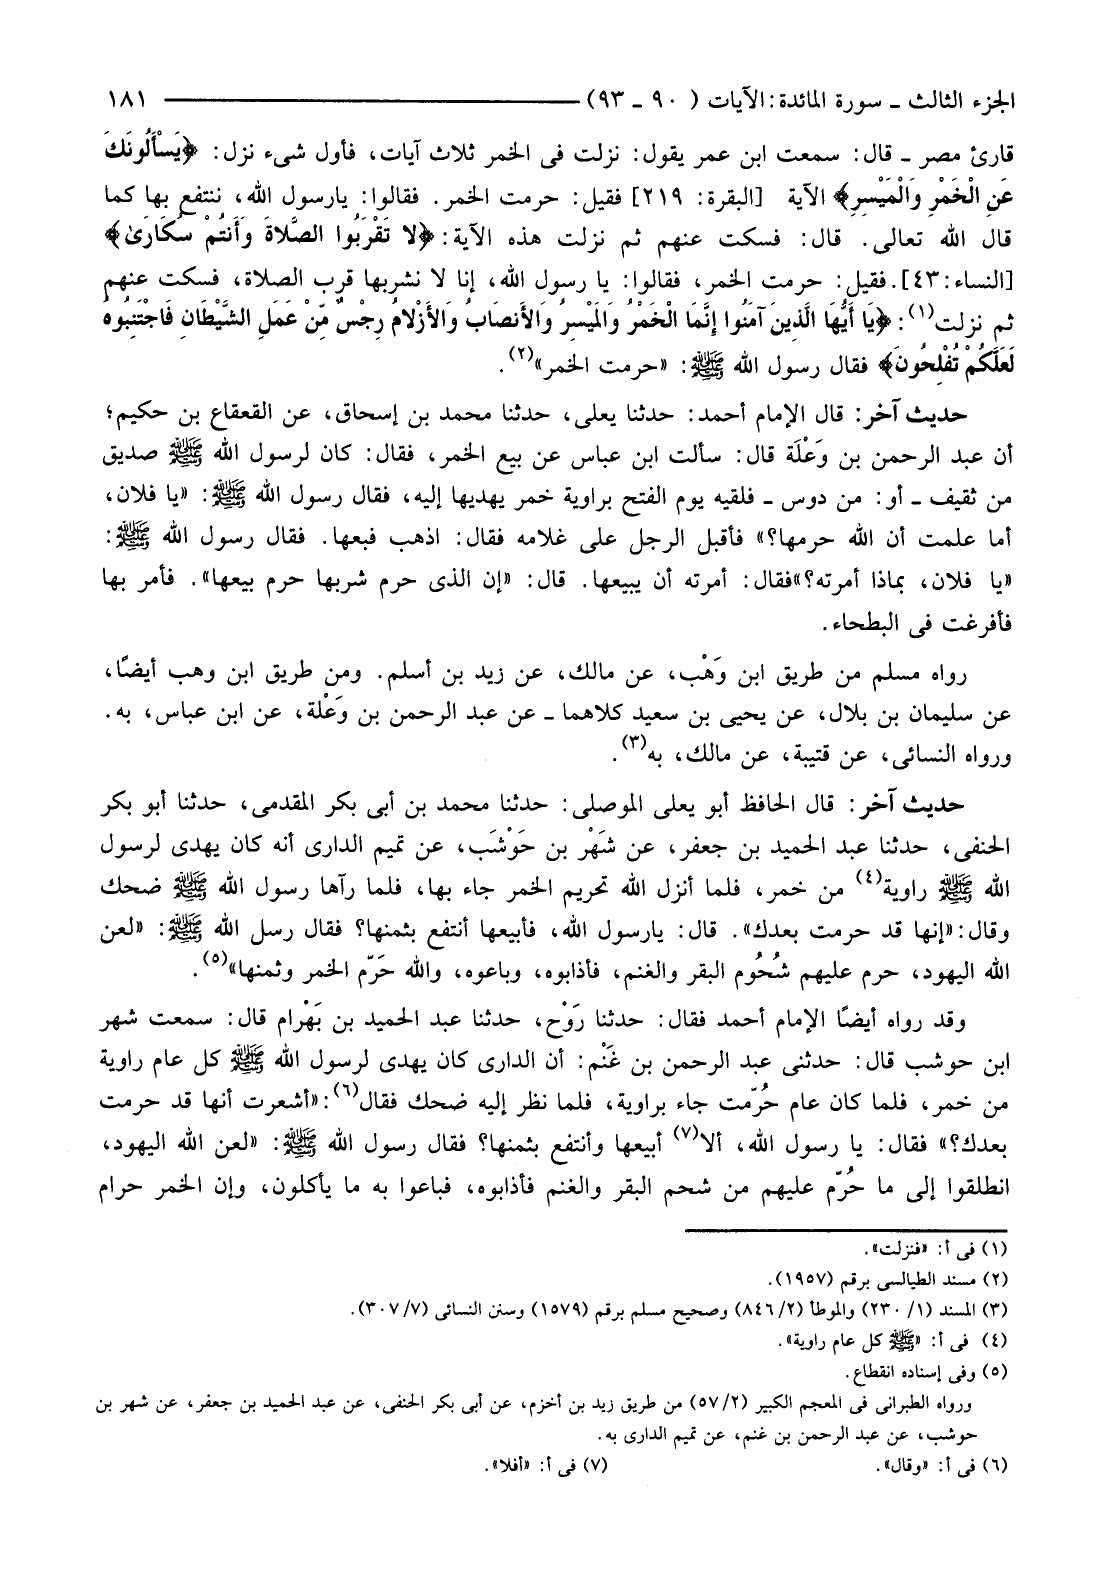 الجزء الثالث ـ سورة المائدة : الآيات ( ٩٠ ـ ٩٣) ١٨١
قارئ مصر ـ قال: سمعت ابن عمر يقول: نزلت فى الخمر ثلاث آيات، فأول شىء نزل: ﴿يَسْأَلُونَكَ
عَنِ الْخَمْرِ وَالْمَيْسِرِ﴾ الآية [البقرة: ٢١٩] فقيل: حرمت الخمر. فقالوا: يارسول الله، ننتفع بها كما
قال الله تعالى. قال: فسكت عنهم ثم نزلت هذه الآية: ﴿لا تَقْرَبُوا الصَّلاةَ وَأَنتُمْ سُكَارَىٰ﴾
[النساء:٤٣]. فقيل: حرمت الخمر، فقالوا: يا رسول الله، إنا لا نشربها قرب الصلاة، فسكت عنهم
ثم نزلت(١): ﴿يَا أَيُّهَا الَّذِينَ آمَنُوا إِنَّمَا الْخَمْرُ وَالْمَيْسِرُ وَالأَنصَابُ وَالأَزْلامُ رِجْسٌ مِّنْ عَمَلِ الشَّيْطَانِ فَاجْتَنِبُوهُ
لَعَلَّكُمْ تُفْلِحُونَ﴾ فقال رسول الله ﷺ: «حرمت الخمر»(٢).
حديث آخر: قال الإمام أحمد: حدثنا يعلى، حدثنا محمد بن إسحاق، عن القعقاع بن حكيم؛
أن عبد الرحمن بن وَعْلَة قال: سألت ابن عباس عن بيع الخمر، فقال: كان لرسول الله ﷺ صديق
من ثقيف ـ أو: من دوس ـ فلقيه يوم الفتح براوية خمر يهديها إليه، فقال رسول الله ﷺ: «يا فلان،
أما علمت أن الله حرمها؟» فأقبل الرجل على غلامه فقال: اذهب فبعها. فقال رسول الله ﷺ:
«يا فلان، بماذا أمرته؟»فقال: أمرته أن يبيعها. قال: «إن الذى حرم شربها حرم بيعها». فأمر بها
فأفرغت فى البطحاء.
رواه مسلم من طريق ابن وَهْب، عن مالك، عن زيد بن أسلم. ومن طريق ابن وهب أيضًا،
عن سليمان بن بلال، عن يحيى بن سعيد كلاهما ـ عن عبد الرحمن بن وَعْلة، عن ابن عباس، به.
ورواه النسائى، عن قتيبة، عن مالك، به(٣).
حديث آخر: قال الحافظ أبو يعلى الموصلى: حدثنا محمد بن أبى بكر المقدمى، حدثنا أبو بكر
الحنفى، حدثنا عبد الحميد بن جعفر، عن شَهْر بن حَوْشَب، عن تميم الدارى أنه كان يهدى لرسول
الله ﷺ راوية(٤) من خمر، فلما أنزل الله تحريم الخمر جاء بها، فلما رآها رسول الله ﷺ ضحك
وقال:«إنها قد حرمت بعدك». قال: يارسول الله، فأبيعها أنتفع بثمنها؟ فقال رسل الله ﷺ: «لعن
الله اليهود، حرم عليهم شُحُوم البقر والغنم، فأذابوه، وباعوه، والله حَرّم الخمر وثمنها»(٥).
وقد رواه أيضًا الإمام أحمد فقال: حدثنا رَوْح، حدثنا عبد الحميد بن بَهْرام قال: سمعت شهر
ابن حوشب قال: حدثنى عبد الرحمن بن غَنْم: أن الدارى كان يهدى لرسول الله ﷺ كل عام راوية
من خمر، فلما كان عام حُرّمت جاء براوية، فلما نظر إليه ضحك فقال(٦):«أشعرت أنها قد حرمت
بعدك؟» فقال: يا رسول الله، ألا(٧) أبيعها وأنتفع بثمنها؟ فقال رسول الله ﷺ: «لعن الله اليهود،
انطلقوا إلى ما حُرّم عليهم من شحم البقر والغنم فأذابوه، فباعوا به ما يأكلون، وإن الخمر حرام
(١) فى أ: «فنزلت».
(٢) مسند الطيالسى برقم (١٩٥٧).
(٣) المسند (١/ ٢٣٠) والموطأ (٢/ ٨٤٦) وصحيح مسلم برقم (١٥٧٩) وسنن النسائى (٧/ ٣٠٧).
(٤) فى أ: «ﷺ كل عام راوية».
(٥) وفى إسناده انقطاع.
ورواه الطبرانى فى المعجم الكبير (٢/ ٥٧) من طريق زيد بن أخزم، عن أبى بكر الحنفى، عن عبد الحميد بن جعفر، عن شهر بن
حوشب، عن عبد الرحمن بن غنم، عن تميم الدارى به.
(٦) فى أ: «وقال». (٧) فى أ: «أفلا».